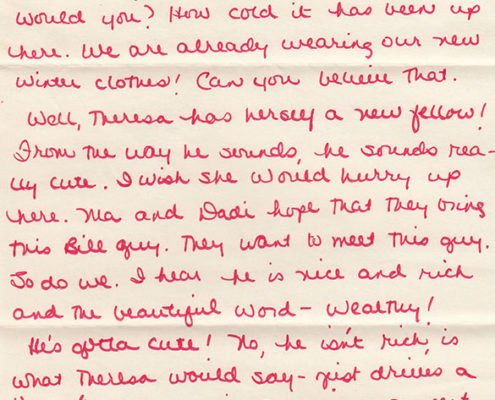 would you? How cold it has been up
here. We are already wearing our new
winter clothes! Can you believe that.
Well, Theresa has herself a new fellow!
From the way he sounds, he sounds rea-
lly cute. I wish she would hurry up
here. Ma and Dadi hope that they bring
this Bill guy. They want to meet this guy.
So do we. I hear he is nice and rich
and the beautiful word - wealthy!
He's gotta cute! No, he isn't rich, is
what Theresa would say - just drives a